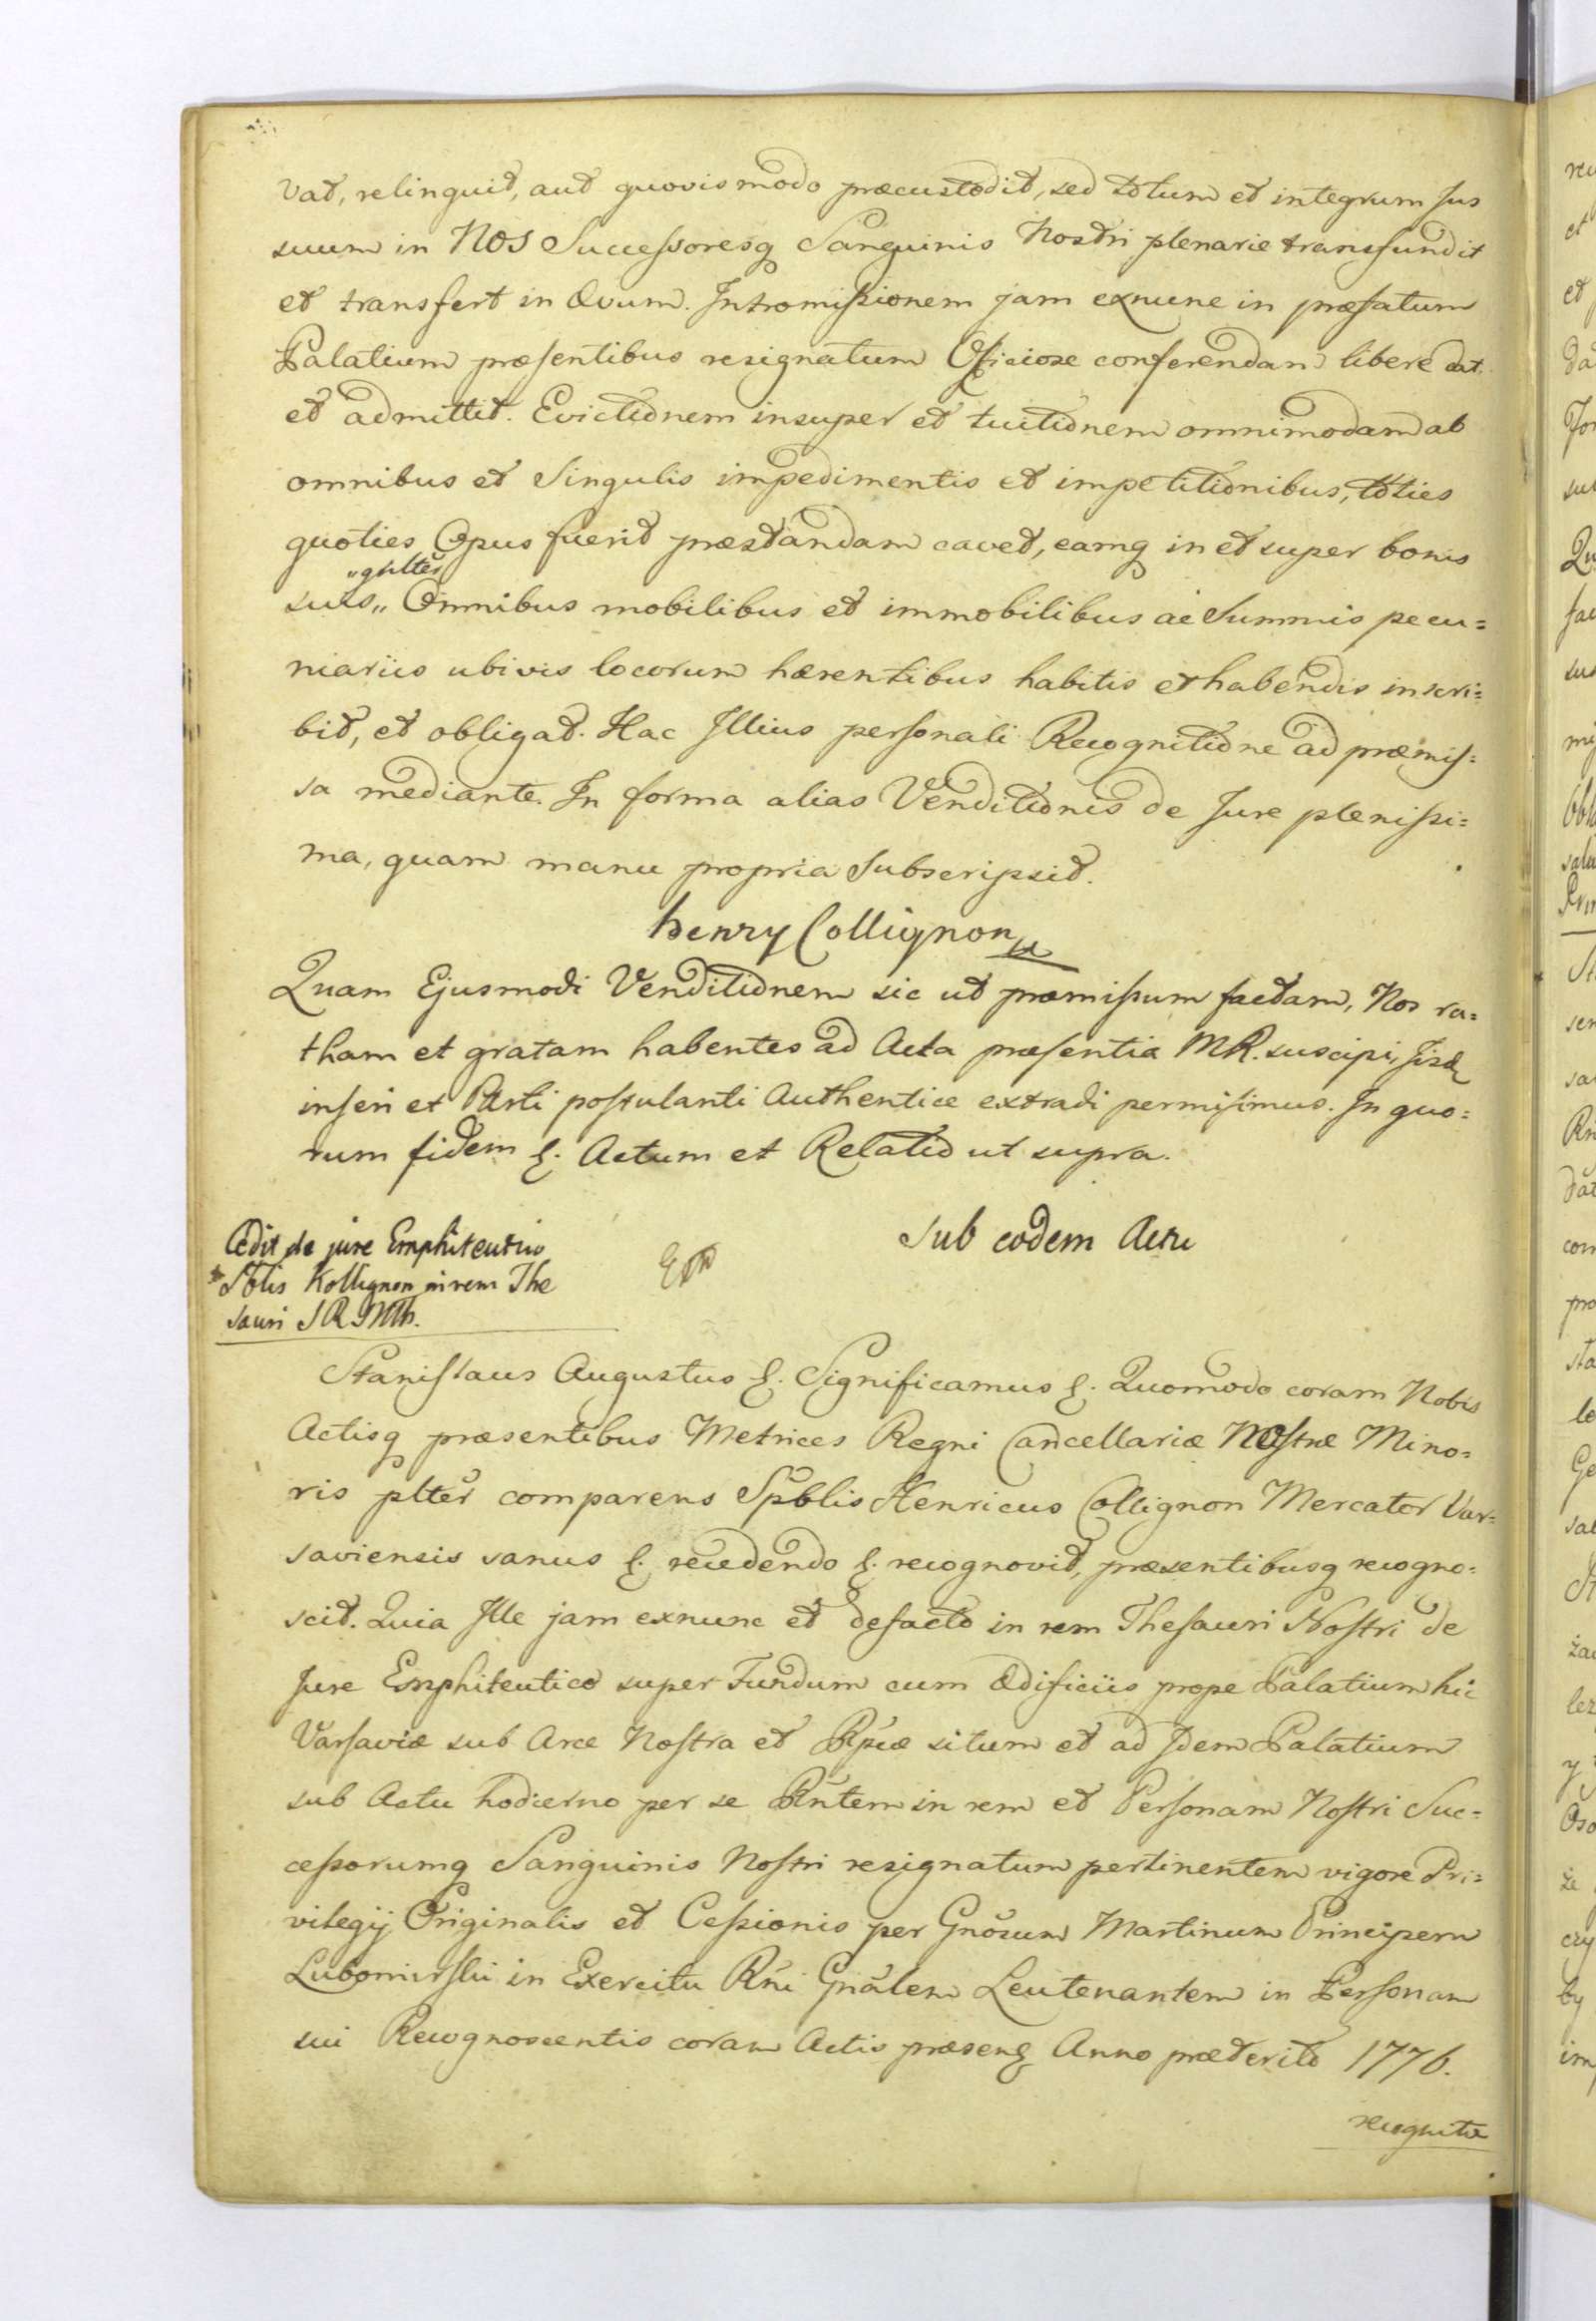 vat, relinquit, aut quovis modo præcustodit, sed totum et integrum Jus
suum in Nos Successoresq Sanguinis Nostri plenarie transfundit
et transfert in Ævum. Intromissionem jam exnunc in præfatum
Palatium præsentibus resignatum Officiose conferendam libere dat
et admittit. Evictionem insuper et tuitionem omnimodam ab
omnibus et Singulis impedimentis et impetitionibus, toties
quoties Opus fuerit præstandam cavet, eamq in et super bonis
„gnlter
suis„ Omnibus mobilibus et immobilibus ac Summis pecu=
niariis ubivis locorum hærentibus habitis et habendis inscri=
bit, et obligat. Hac Illius personali Recognitione ad præmis=
sa mediante. In forma alias Venditionis de Jure plenissi=
ma, quam manu propria Subscripsit.
henry Collignon
Quam Ejusmodi Venditionem sic ut præmissum factam, Nos ra=
tham et gratam habentes ad Acta præsentia MR. suscipi, Jisd
inseri et Parti postulanti Authentice extradi permisimus. In quo=
rum fidem &. Actum et Relatio ut supra.
Cedit de jure Emphiteutico
Sblis Kollignon in rem The
sauri S R Mth.
Sub eodem Actu
Stanislaus Augustus &. Significamus &. Quomodo coram Nobis
Actisq præsentibus Metrices Regni Cancellariæ Nostræ Mino=
ris plter comparens Spblis Henricus Collignon Mercator Var=
saviensis sanus &. recedendo &. recognovit, præsentibusq recogno=
scit. Quia Ille jam exnunc et defacto in rem Thesauri Nostri de
Jure Emphiteutico super Fundum cum Ædificiis prope Palatium hic
Varsaviæ sub Arce Nostra et Rpcæ situm et ad Jdem Palatium
sub Actu hodierno per se Rntem in rem et Personam Nostri Suc=
cessorumq Sanguinis Nostri resignatum pertinentem vigore Pri=
vilegij Originalis et Cessionis per Gnosum Martinum Principem
Lubomirski in Exercitu Rni Gnalem Leutenantem in Personam
sui Recognoscentis coram Actis præsen& Anno præterito 1776.
recognitæ